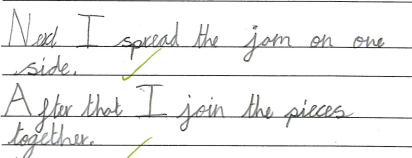 Next I spread the jam on one
side.
After that I join the pieces
together.